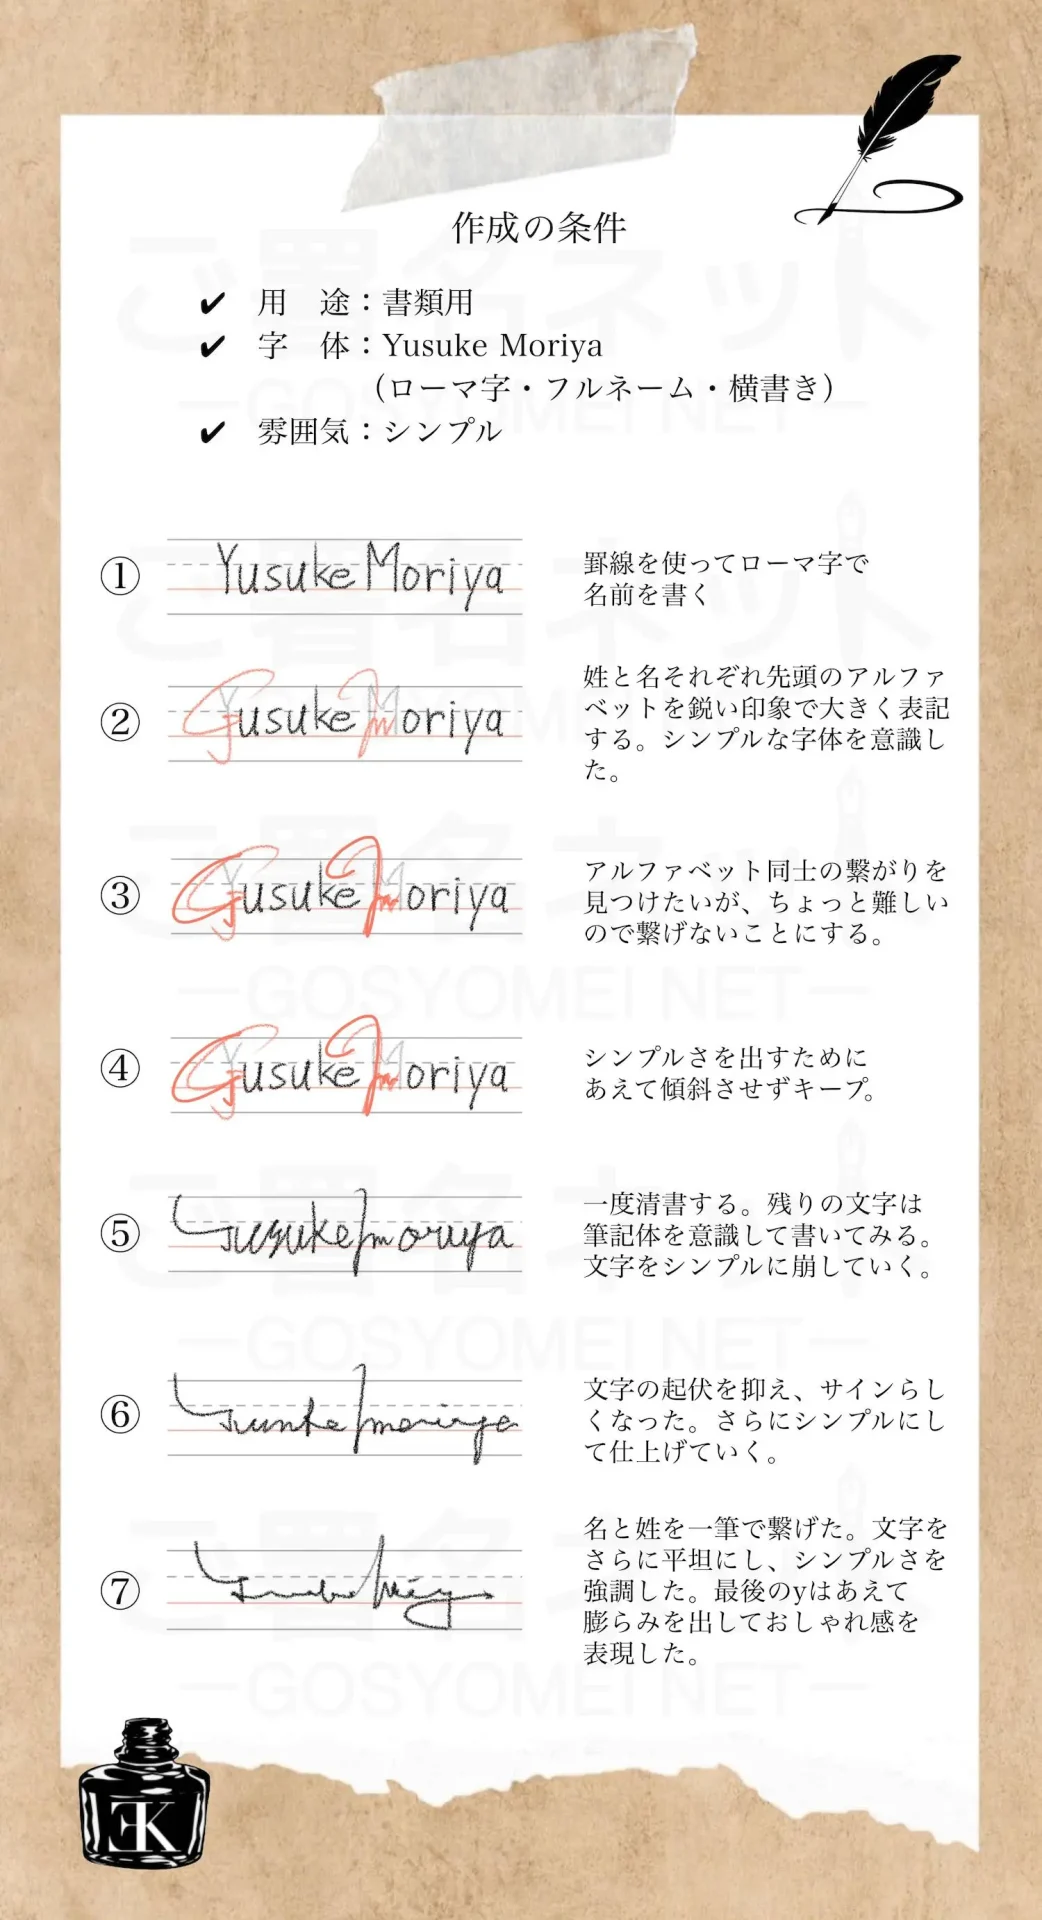 作成の条件
✔ 用　途：書類用
✔ 字　体：Yusuke Moriya
（ローマ字・フルネーム・横書き）
✔ 雰囲気：シンプル
① Yusuke Moriya
罫線を使ってローマ字で
名前を書く
② Yusuke Moriya
姓と名それぞれ先頭のアルファ
ベットを鋭い印象で大きく表記
する。シンプルな字体を意識し
た。
③ Yusuke Moriya
アルファベット同士の繋がりを
見つけたいが、ちょっと難しい
ので繋げないことにする。
④ Yusuke Moriya
シンプルさを出すために
あえて傾斜させずキープ。
⑤ Yusuke Moriya
一度清書する。残りの文字は
筆記体を意識して書いてみる。
文字をシンプルに崩していく。
⑥
文字の起伏を抑え、サインらし
くなった。さらにシンプルにし
て仕上げていく。
⑦
名と姓を一筆で繋げた。文字を
さらに平坦にし、シンプルさを
強調した。最後のyはあえて
膨らみを出しておしゃれ感を
表現した。
ご署名ネット
GOSYOMEI NET
EK